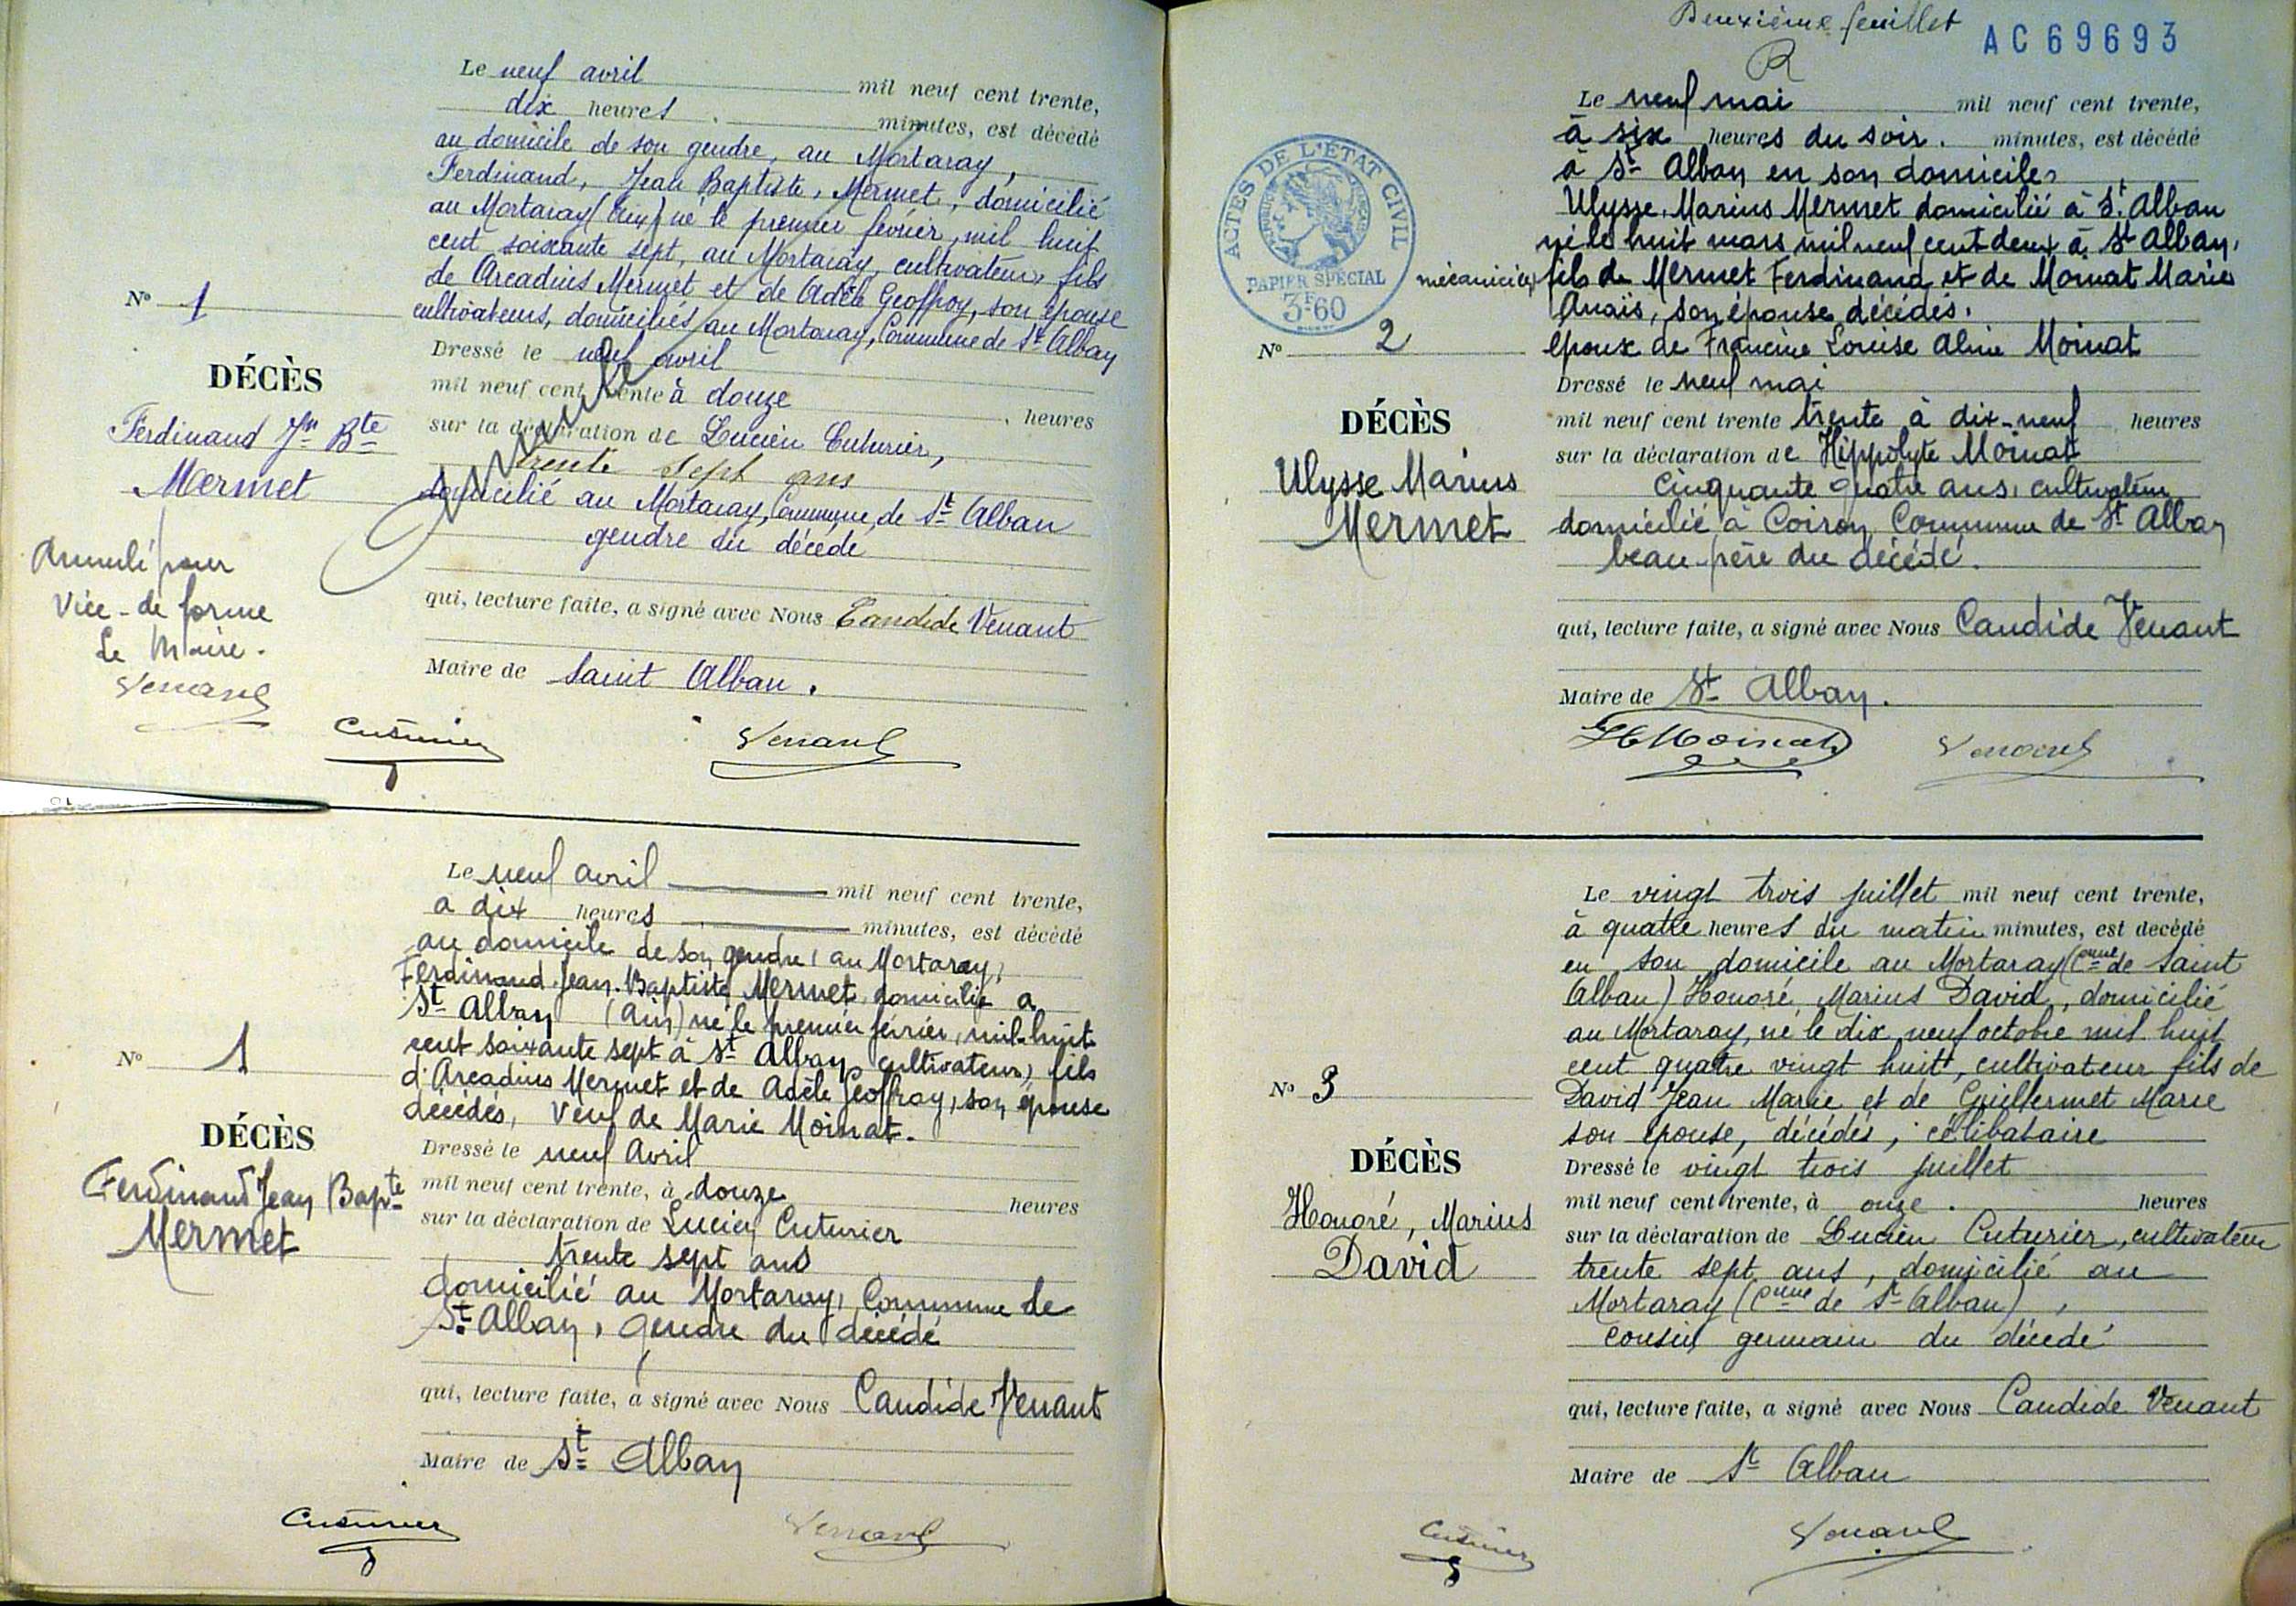 Le neuf avril mil neuf cent trente,
dix heures minutes, est décédé
au domicile de son gendre, au Mortaray,
Ferdinand, Jean Baptiste, Mermet, domicilié
au Mortaray (Ain) né le premier février mil huit
cent soixante sept, au Mortaray, cultivateur, fils
de Arcadius Mermet et de Adèle Geoffroy, son épouse
cultivateurs, domiciliés au Mortaray, Commune de St Alban
Dressé le neuf avril
mil neuf cent trente à douze heures
sur la déclaration de Lucien Cuturier,
trente sept ans
domicilié au Mortaray, Commune de St Alban
gendre du décédé
qui, lecture faite, a signé avec Nous Candide Venant
Maire de Saint Alban.
Annulé
No 1
DÉCÈS
Ferdinand Jn Bte
Mermet
Annulé pour
Vice-de forme
Le Maire.
Venant
Cuturier Venant
Le neuf avril mil neuf cent trente,
a dix heures minutes, est décédé
au domicile de son gendre, au Mortaray,
Ferdinand Jean-Baptiste Mermet, domicilié a
St Alban (Ain) né le premier février, mil-huit
cent soixante sept à St Alban, cultivateur, fils
d'Arcadius Mermet et de Adèle Geoffray, son épouse
décédés, veuf de Marie Moinat.
Dressé le neuf Avril
mil neuf cent trente, à douze heures
sur la déclaration de Lucien Cuturier
trente sept ans
domicilié au Mortaray, Commune de
St Alban, gendre du décédé
qui, lecture faite, a signé avec Nous Candide Venant
Maire de St Alban
No 1
DÉCÈS
Ferdinand Jean Bapte
Mermet
Cuturier Venant
Deuxième feuillet
AC69693
ACTES DE L'ÉTAT CIVIL
PAPIER SPÉCIAL
3F60
Le neuf mai mil neuf cent trente,
à six heures du soir. minutes, est décédé
à St Alban en son domicile,
Ulysse, Marius Mermet domicilié à St Alban
né le huit mars mil neuf cent deux à St Alban,
mécanicien, fils de Mermet Ferdinand et de Moinat Marie
Anaïs, son épouse décédés.
époux de Francine Louise Aline Moinat
Dressé le neuf mai
mil neuf cent trente trente à dix-neuf heures
sur la déclaration de Hippolyte Moinat
Cinquante quatre ans, cultivateur
domicilié à Coiron Commune de St Alban
beau-père du décédé.
qui, lecture faite, a signé avec Nous Candide Venant
Maire de St Alban.
No 2
DÉCÈS
Ulysse Marius
Mermet
H Moinat Venant
Le vingt trois juillet mil neuf cent trente,
à quatre heures du matin minutes, est décédé
en son domicile au Mortaray (Cmune de Saint
Alban) Honoré, Marius David, domicilié
au Mortaray, né le dix neuf octobre mil huit
cent quatre vingt huit, cultivateur fils de
David Jean Marie et de Guillermet Marie
son épouse, décédés, célibataire
Dressé le vingt trois juillet
mil neuf cent trente, à onze. heures
sur la déclaration de Lucien Cuturier, cultivateur
trente sept ans, domicilié au
Mortaray (Cmune de St Alban),
cousin germain du décédé
qui, lecture faite, a signé avec Nous Candide Venant
Maire de St Alban
No 3
DÉCÈS
Honoré, Marius
David
Cuturier Venant